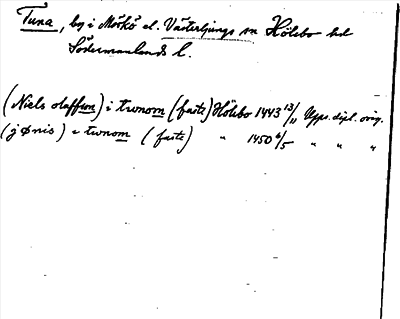 Tuna, by i Mörkö el. Västerljungs sn Hölebo hd
Södermanlands l.
(Niels olaffson) i twnom (faste) Hölebo 1443 13/11 Upps. dipl. orig.
(jønis) i twnom (faste) " 1450 6/5 " " "